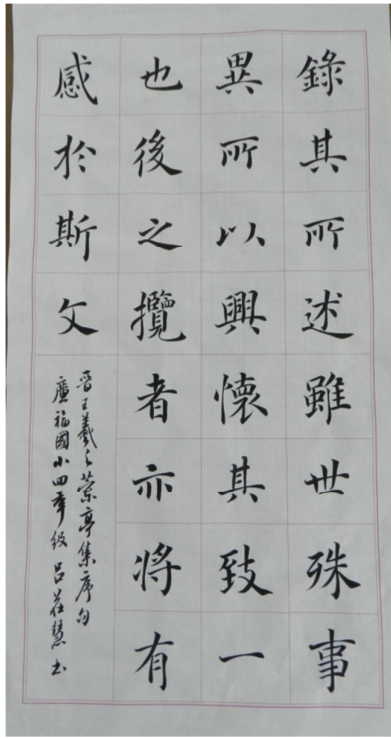 錄其所述雖世殊事
異所以興懷其致一
也後之攬者亦將有
感於斯文
晉王羲之蘭亭集序句
廣福國小四年級呂莊慧书